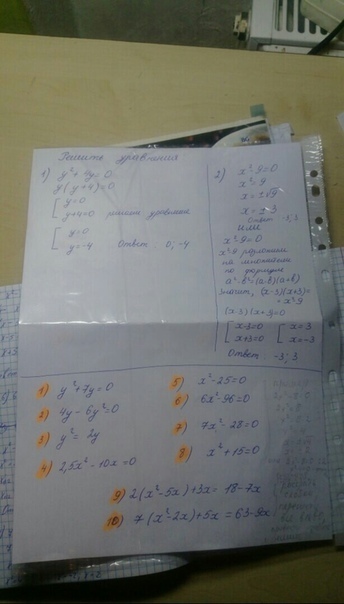 Решить уравнения
1) y²+4y=0
y(y+4)=0
y=0
y+4=0 решаем уравнение
y=0
y=-4 Ответ: 0; -4
2) x²-9=0
x²=9
x=±√9
x=±3
Ответ -3;3
или
x²-9=0
x²-9 разложим
на множители
по формуле
a²-b²=(a-b)(a+b)
Значит, (x-3)(x+3)=
=x²-9
(x-3)(x+3)=0
x-3=0 x=3
x+3=0 x=-3
Ответ: -3; 3
1) y²+7y=0
2) 4y-6y²=0
3) y²=2y
4) 2,5x²-10x=0
5) x²-25=0
6) 6x²-96=0
7) 7x²-28=0
8) x²+15=0
9) 2(x²-5x)+3x=18-7x
10) 7(x²-2x)+5x=63-9x